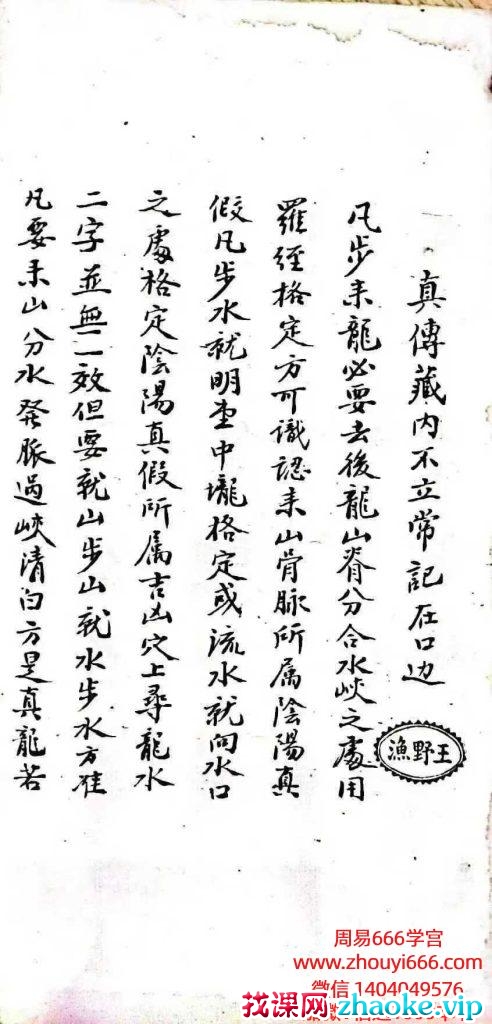 真傳藏內不立常記在口边
凡步来龍必要去後龍山脊分合水峽之處用
羅經格定方可識認来山骨脉所属陰陽真
假凡步水就明堂中壠格定或流水就向水口
之處格定陰陽真假所属吉凶穴上尋龍水
二字並無一效但要就山步山就水步水方准
凡要来山分水發脈過峽清白方是真龍若
漁野王
周易666学宫
www.zhouyi666.com
微信 1404049576
找课网zhaoke.vip